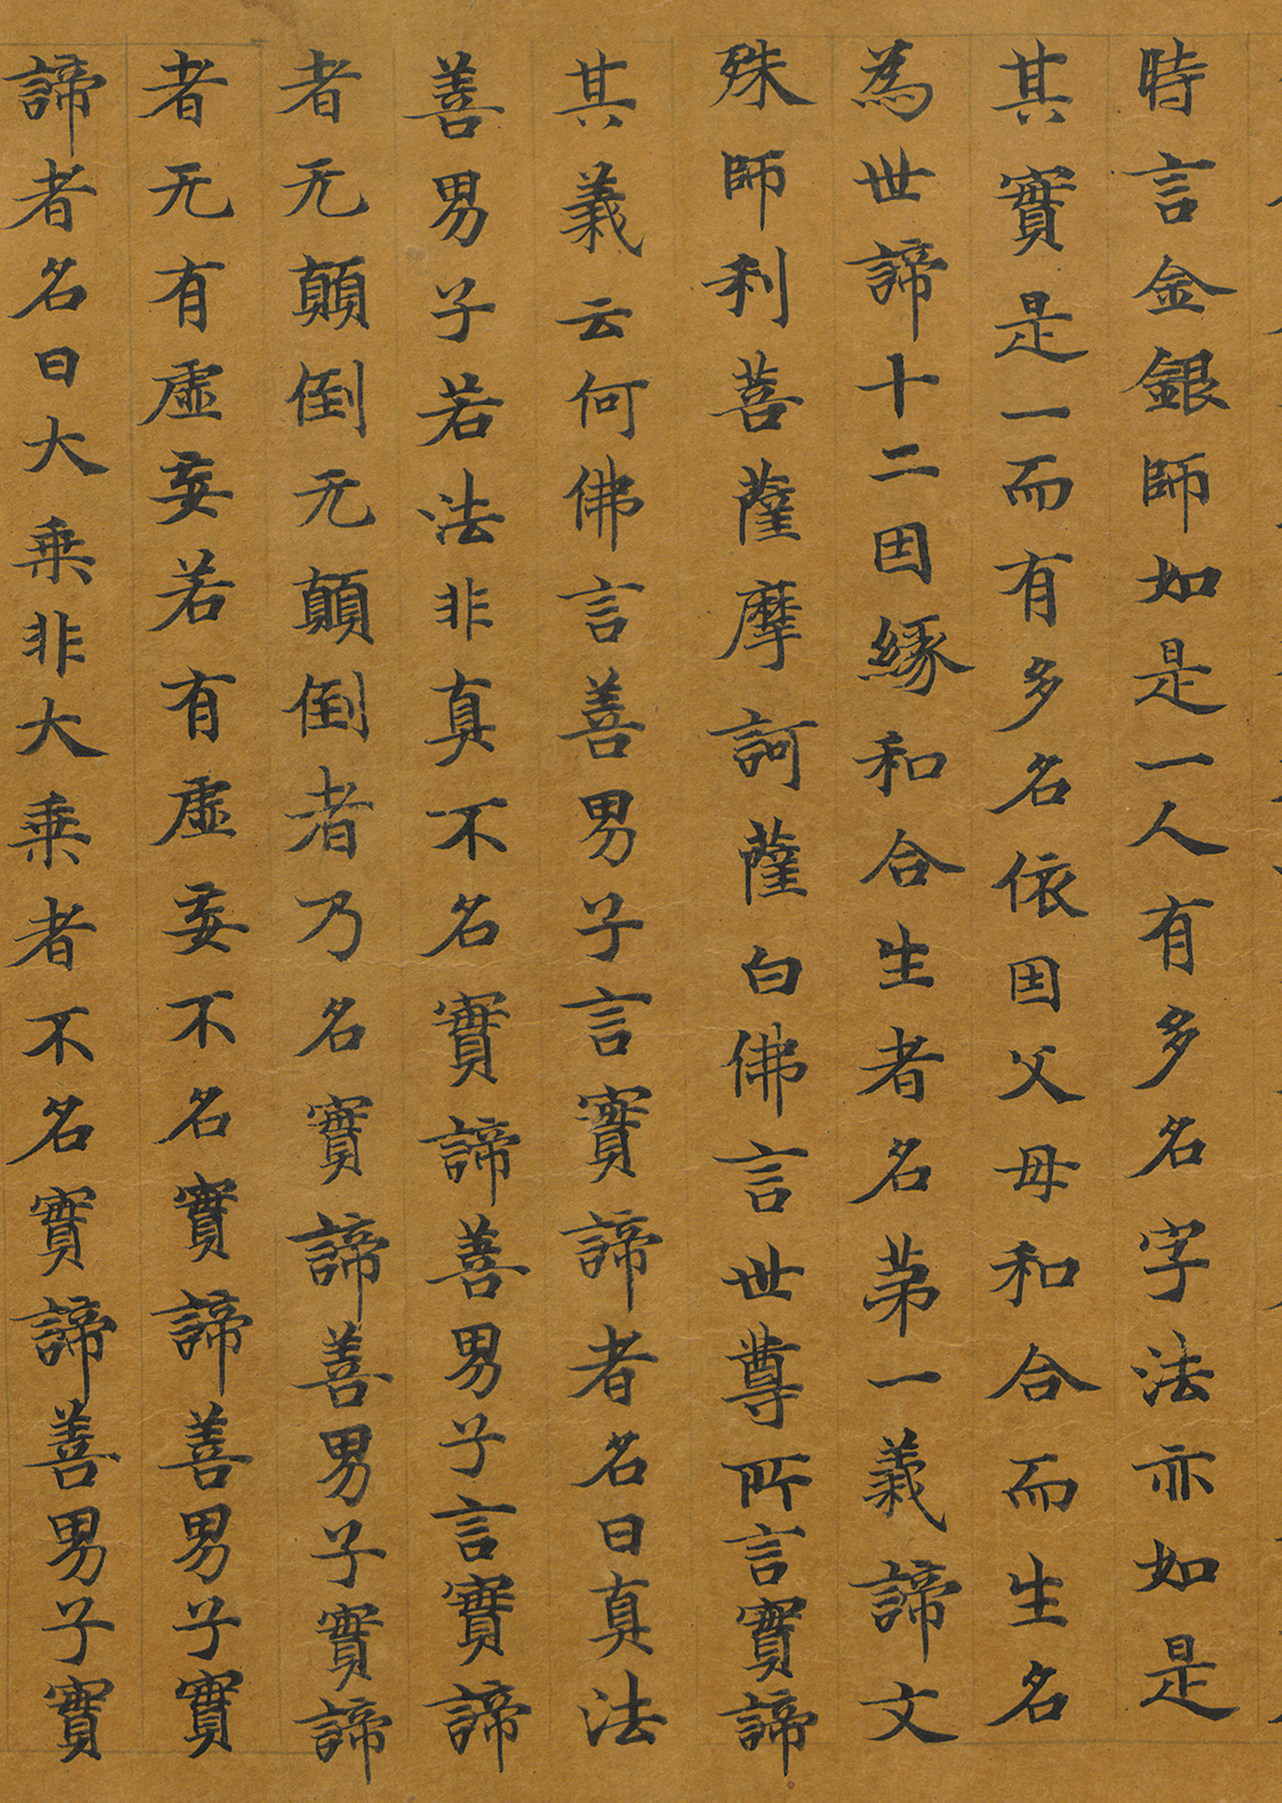 時言金銀師如是一人有多名字法亦如是
其實是一而有多名依因父母和合而生名
為世諦十二因緣和合生者名苐一義諦文
殊師利菩薩摩訶薩白佛言世尊所言實諦
其義云何佛言善男子言實諦者名曰真法
善男子若法非真不名實諦善男子言實諦
者无顛倒无顛倒者乃名實諦善男子實諦
者无有虛妄若有虛妄不名實諦善男子實
諦者名曰大乗非大乗者不名實諦善男子實